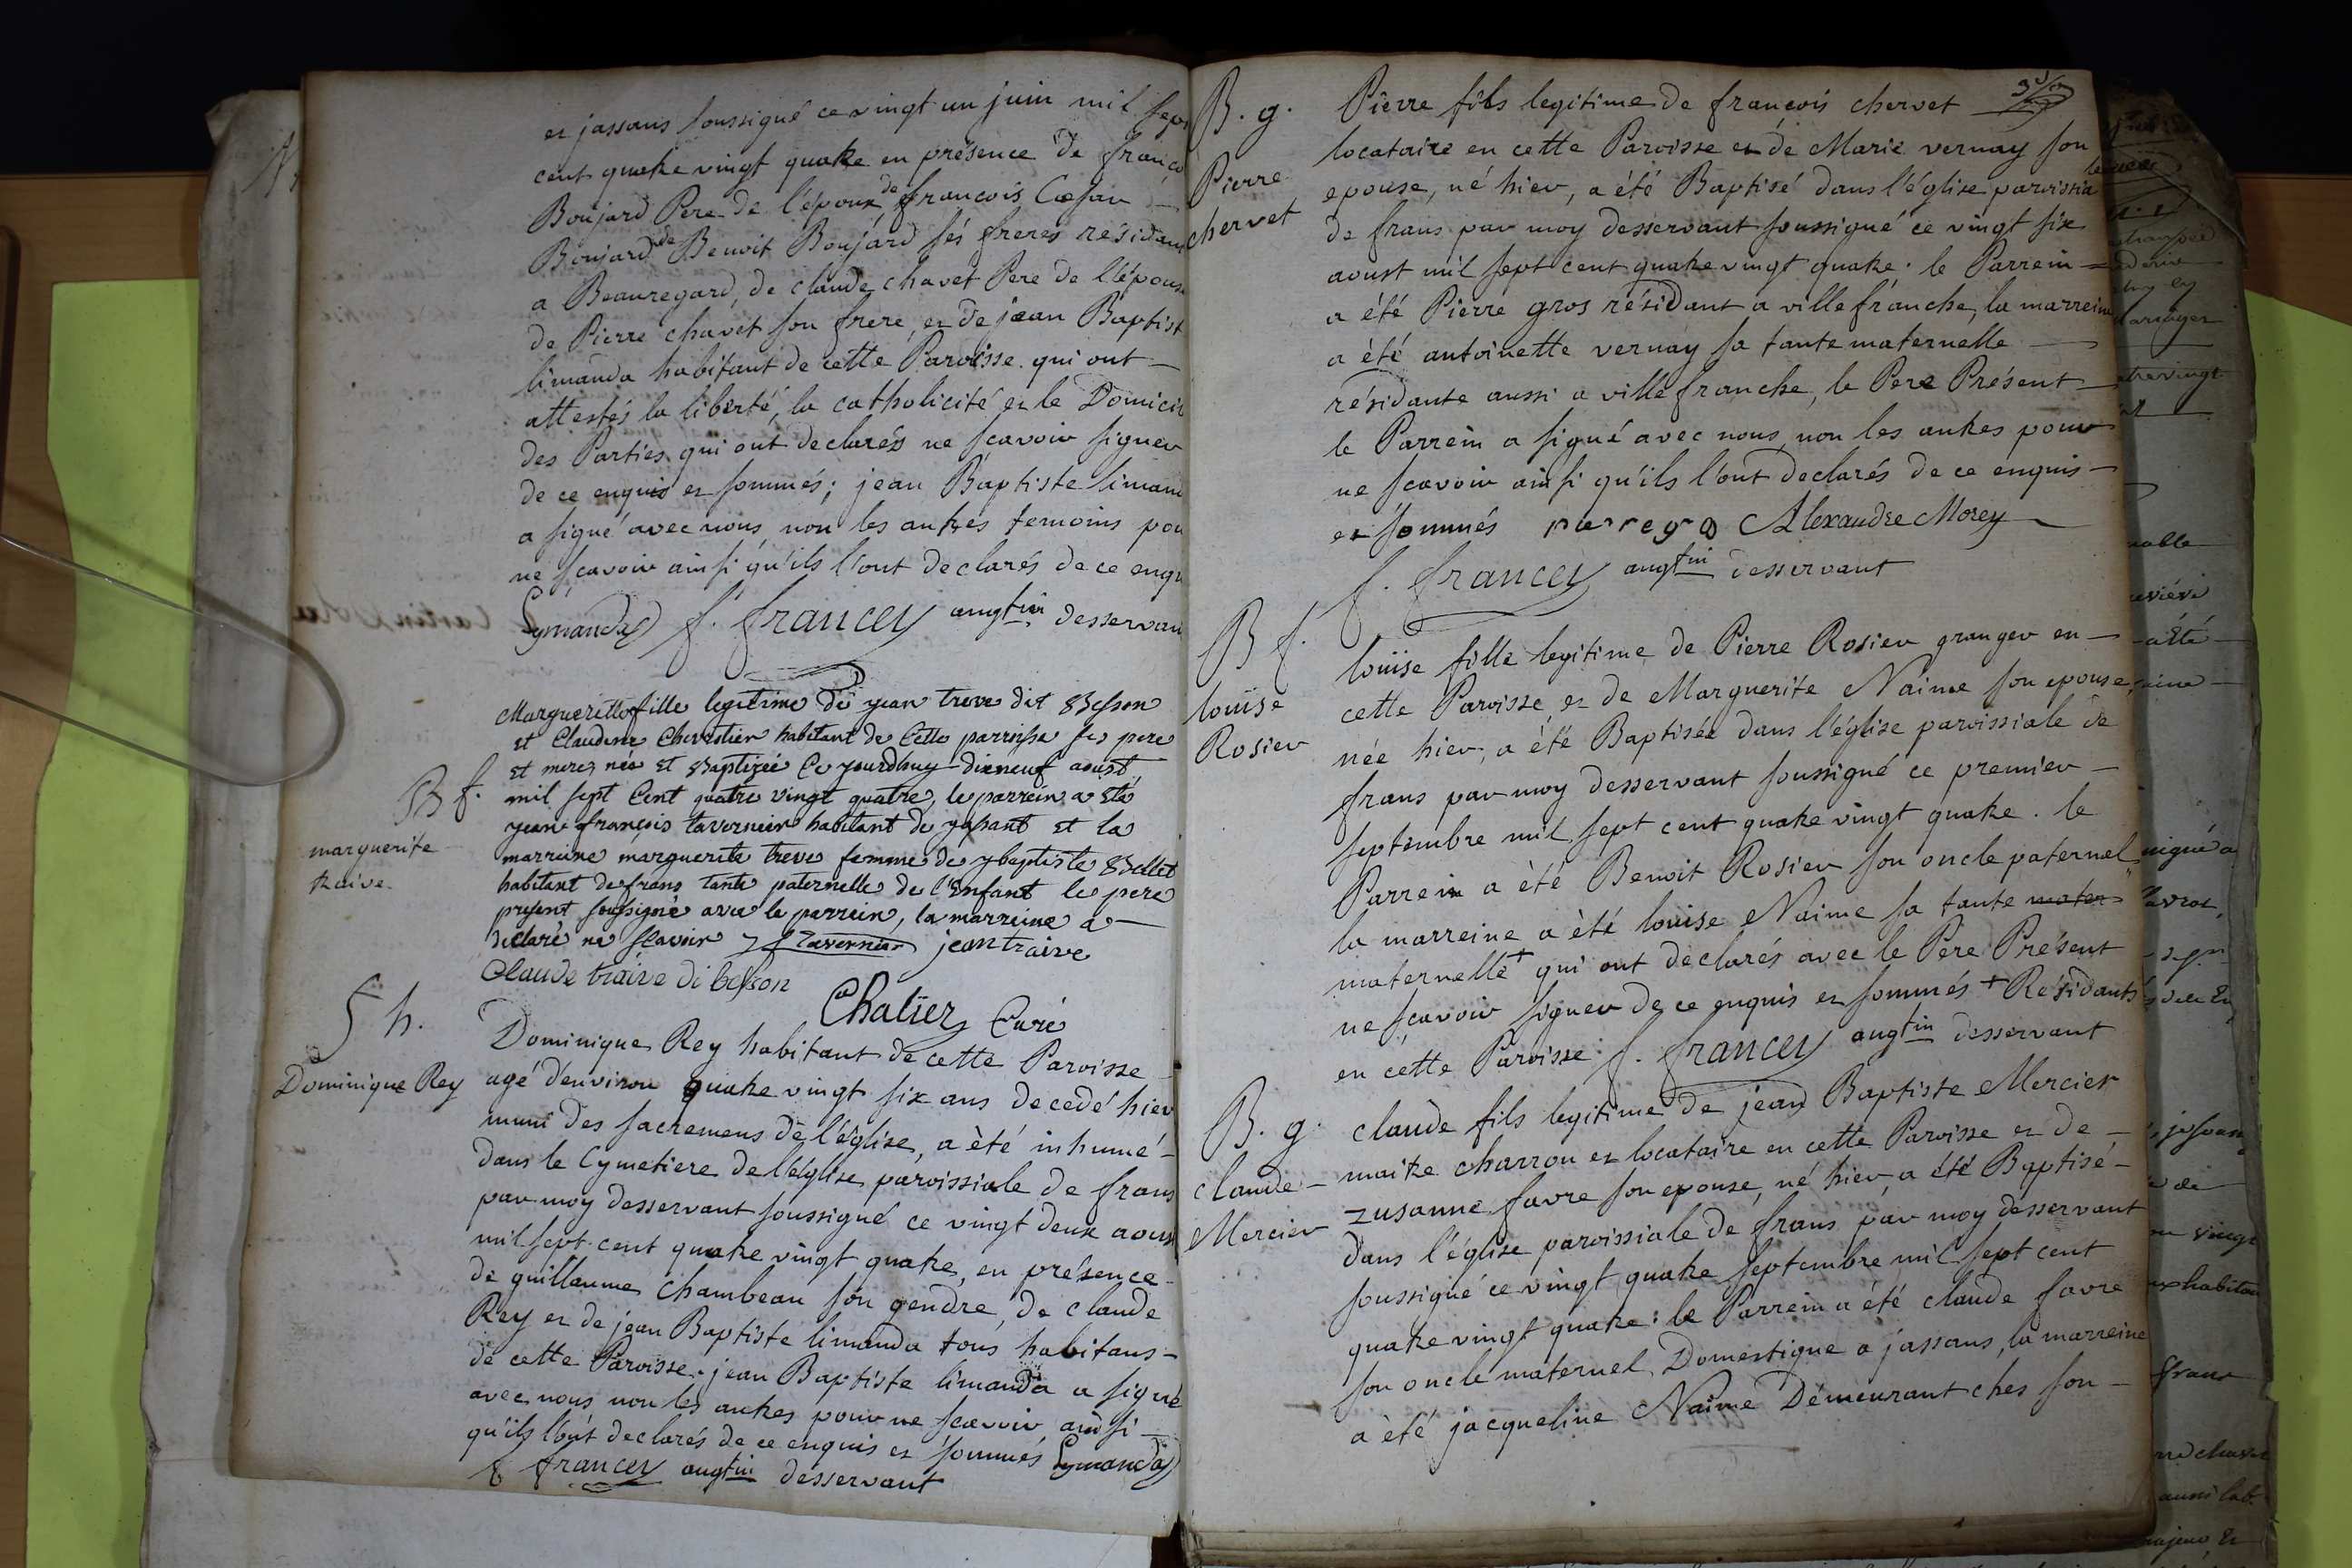 et jassans soussigné ce vingt un juin mil sept
cent quatre vingt quatre en présence de franço
Boujard Pere de l'époux, de françois Cæsar
Boujard de Benoit Boujard sés freres résidant
a Beauregard, de claude chavet Pere de l'épouse
de Pierre chavet son frere, et de jean Baptist
limanda habitant de cette Paroisse qui ont
attestés la liberté, la catholicité et le Domicil
des Parties qui ont declarés ne scavoir signer
de ce enquis et sommés; jean Baptiste limand
a signé avec nous, non les autres temoins pou
ne scavoir ainsi qu'ils l'ont declarés de ce enqu
Lymanda f. francey augtin desservan
B f.
marguerite
traive
Margueritte fille legitime de jean treve dit Besson
et Claudine Chevretier habitant de cette parroisse ses pere
et mere, née et Baptizée ce jourdhuy dixneuf aoust
mil sept Cent quatre vingt quatre, le parrein a Eté
jean françois tavernier habitant de jassant et la
marreine marguerite treve femme de jbaptiste Bellet
habitant de frans tante paternelle de l'Enfant le pere
present soussigné avec le parrein, la marreine a
declaré ne scavoir jf Tavernier jean traive
Claude traive di besson
Chatier Curé
S h.
Dominique Rey
Dominique Rey habitant de cette Paroisse
agé d'environ quatre vingt six ans decedé hier
muni des sacremens de l'église, a été inhumé
dans le Cymetiere de l'église paroissiale de frans
par moy desservant soussigné ce vingt deux aoust
mil sept cent quatre vingt quatre, en présence
de guillaume Chambeau son gendre, de claude
Rey et de jean Baptiste limanda tous habitans
de cette Paroisse. jean Baptiste limanda a signé
avec nous non les autres pour ne scavoir, ainsi
qu'ils l'ont declarés de ce enquis et sommés Lymanda
f francey augtin desservant
B. g.
Pierre
chervet
Pierre fils legitime de françois chervet
locataire en cette Paroisse et de Marie vernay son
epouse, né hier, a été Baptisé dans l'église paroissia
de frans par moy desservant soussigné ce vingt six
aoust mil sept cent quatre vingt quatre. le Parrein
a été Pierre gros résidant a villefranche, la marreine
a été antoinette vernay sa tante maternelle
résidante aussi a villefranche, le Pere Présent
le Parrein a signé avec nous, non les autres pour
ne scavoir ainsi qu'ils l'ont declarés de ce enquis
et sommés pierre gro Alexandre Morey
f. francey augtin desservant
B f.
louise
Rosier
louise fille legitime de Pierre Rosier granger en
cette Paroisse et de Marguerite Naime son epouse,
née hier, a été Baptisée dans l'église paroissiale de
frans par moy desservant soussigné ce premier
septembre mil sept cent quatre vingt quatre. le
Parrein a été Benoit Rosier son oncle paternel
la marreine a été louise Naime sa tante mater
maternelle + qui ont declarés avec le Pere Présent
ne scavoir signer de ce enquis et sommés + Résidants
en cette Paroisse f. francey augtin desservant
B. g.
claude
Mercier
claude fils legitime de jean Baptiste Mercier
maitre charron et locataire en cette Paroisse et de
zusanne favre son epouse, né hier, a été Baptisé
dans l'église paroissiale de frans par moy desservant
soussigné ce vingt quatre septembre mil sept cent
quatre vingt quatre: le Parrein a été claude favre
son oncle maternel, Domestique a jassans, la marreine
a été jacqueline Naime Démeurant ches son